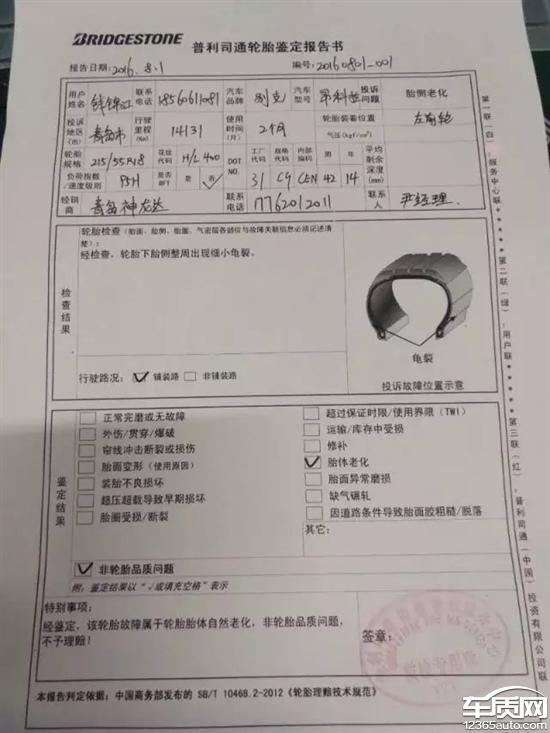 BRIDGESTONE 普利司通轮胎鉴定报告书
报告日期: 2016.8.1 编号: 20160801-001
用户姓名 联系电话 18560611081 汽车品牌 别克 汽车型号 昂科拉 投诉问题 胎侧老化
投诉地区(市) 青岛市 行驶里程(Km) 14131 使用时间(月) 2个月 轮胎装着位置 左前轮
气压(kgf/cm²)
轮胎规格 215/55R18 花纹代码 H/L 400 DOT NO. 工厂代码 31 规格代码 C9 内部编码 CEN 周 42 年 14 平均剩余深度(mm)
负荷指数/速度级别 95H 是否BFT 是 否 √
经销商 青岛神龙达 联系电话 17762012011 联系人 尹经理
检查结果
轮胎检查(胎面、胎侧、胎圈、气密层各部位与故障关联信息必须记述清楚):
经检查,轮胎下胎侧整周出现细小龟裂。
龟裂
行驶路况: √ 铺装路 非铺装路
投诉故障位置示意
鉴定结果
正常完磨或无故障
外伤/贯穿/爆破
帘线冲击断裂或损伤
胎面变形(使用原因)
装胎不良损坏
超压超载导致早期损坏
胎圈受损/断裂
超过保证时限/使用界限(TWI)
运输/库存中受损
修补
√ 胎体老化
胎面异常磨损
缺气碾轧
因道路条件导致胎面胶粗糙/脱落
其它:
√ 非轮胎品质问题
附: 鉴定结果以“√或填充空格”表示
特别事项:
经鉴定,该轮胎故障属于轮胎胎体自然老化,非轮胎品质问题,
不予理赔!
签章:
本报告判定依据: 中国商务部发布的 SB/T 10468.2-2012《轮胎理赔技术规范》
第一联(白):服务中心联 第二联(绿):用户联 第三联(红):普利司通(中国)投资有限公司联
车质网
12365auto.com